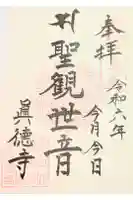 奉拝
令和六年
今月今日
聖観世音
眞德寺